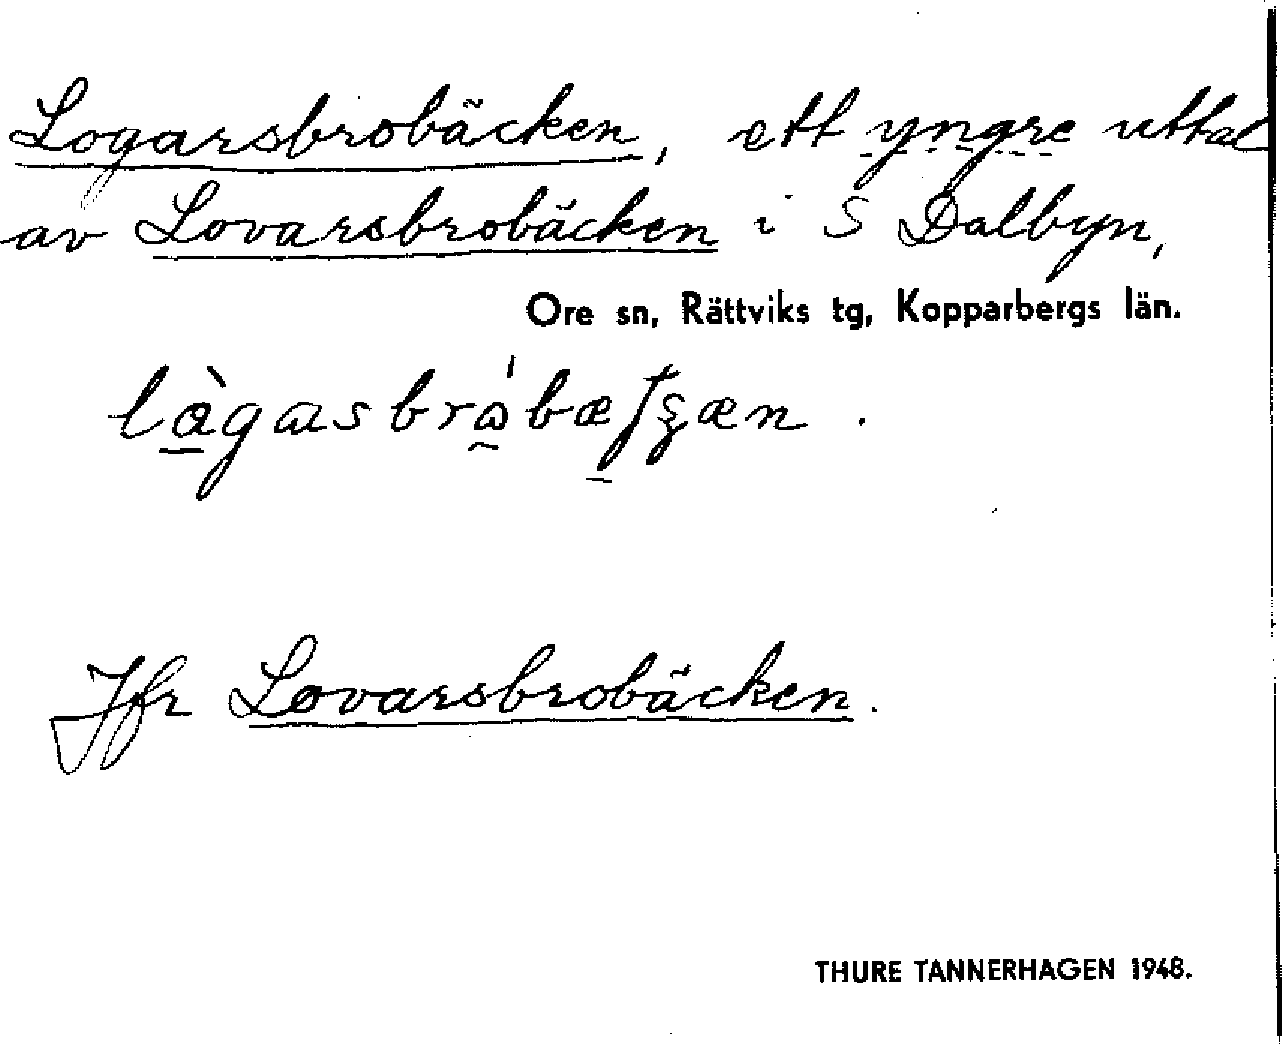 Logarsbrobäcken, ett yngre uttal
av Lovarsbrobäcken i S Dalbyn,
Ore sn, Rättviks tg, Kopparbergs län.
Jfr Lovarsbrobäcken.
THURE TANNERHAGEN 1948.